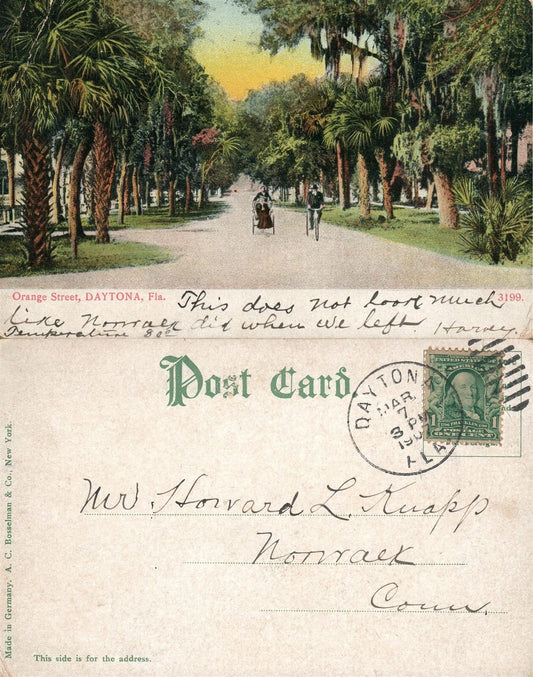 Orange Street, DAYTONA, Fla. This does not look much 3199.
like Norwalk did when we left Harvey.
Temperature 80°
Post Card.
DAYTONA
MAR
7
3 PM
190
FLA
UNITED STATES
1 1
ONE CENT
Mr Howard L. Knapp
Norwalk
Conn.
This side is for the address.
Made in Germany. A. C. Bosselman & Co., New York.